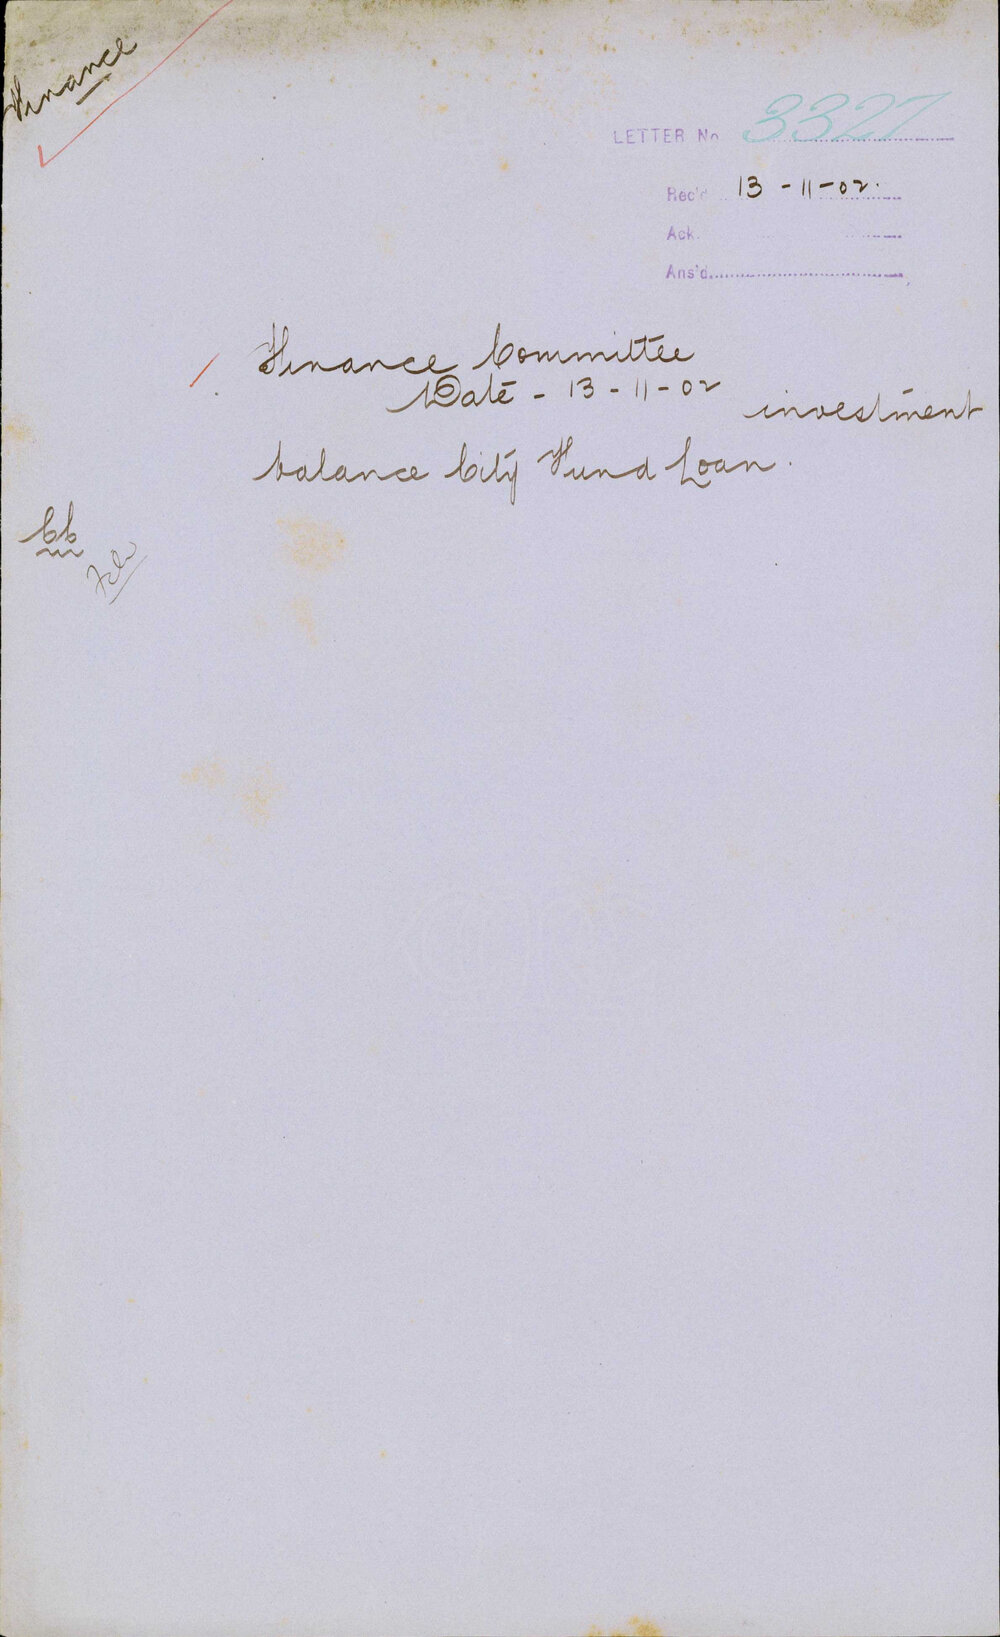 Finance
LETTER No 3327
Rec'd 13-11-02.
Ack.
Ans'd
Finance Committee
Date - 13-11-02
investment
balance City Fund Loan.